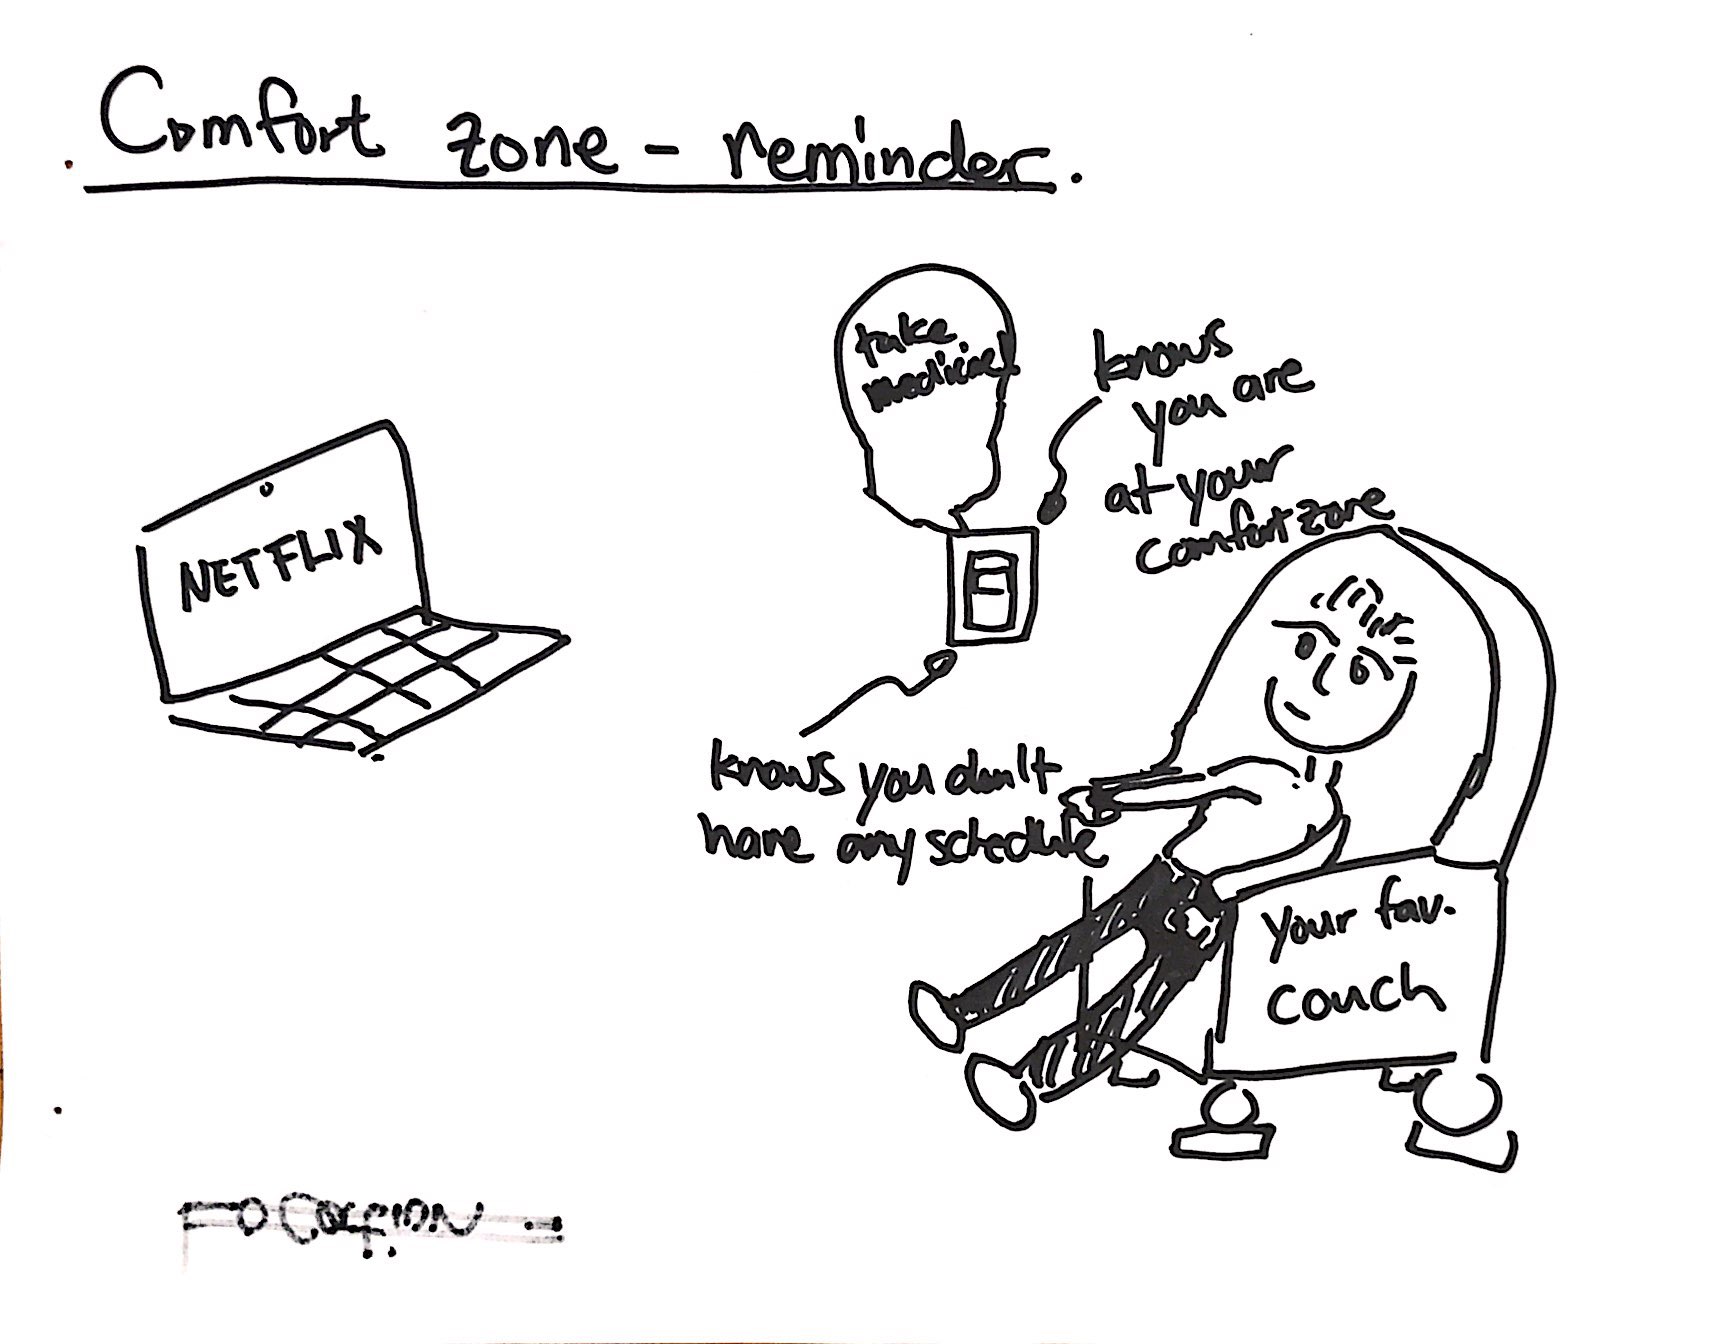 Comfort zone - reminder.
take
medicine!
knows
you are
at your
comfort zone
NETFLIX
knows you don't
have any schedule
your fav.
couch